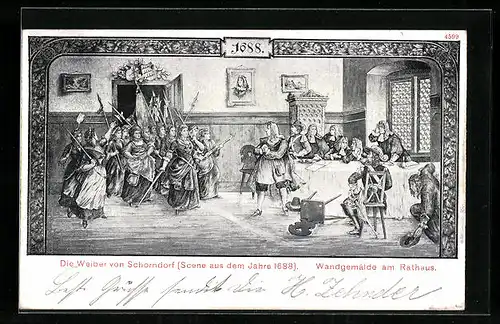 4599
1688.
Die Weiber von Schorndorf (Scene aus dem Jahre 1688). Wandgemälde am Rathaus.
Best Grüsse sendet die H. Zehnder